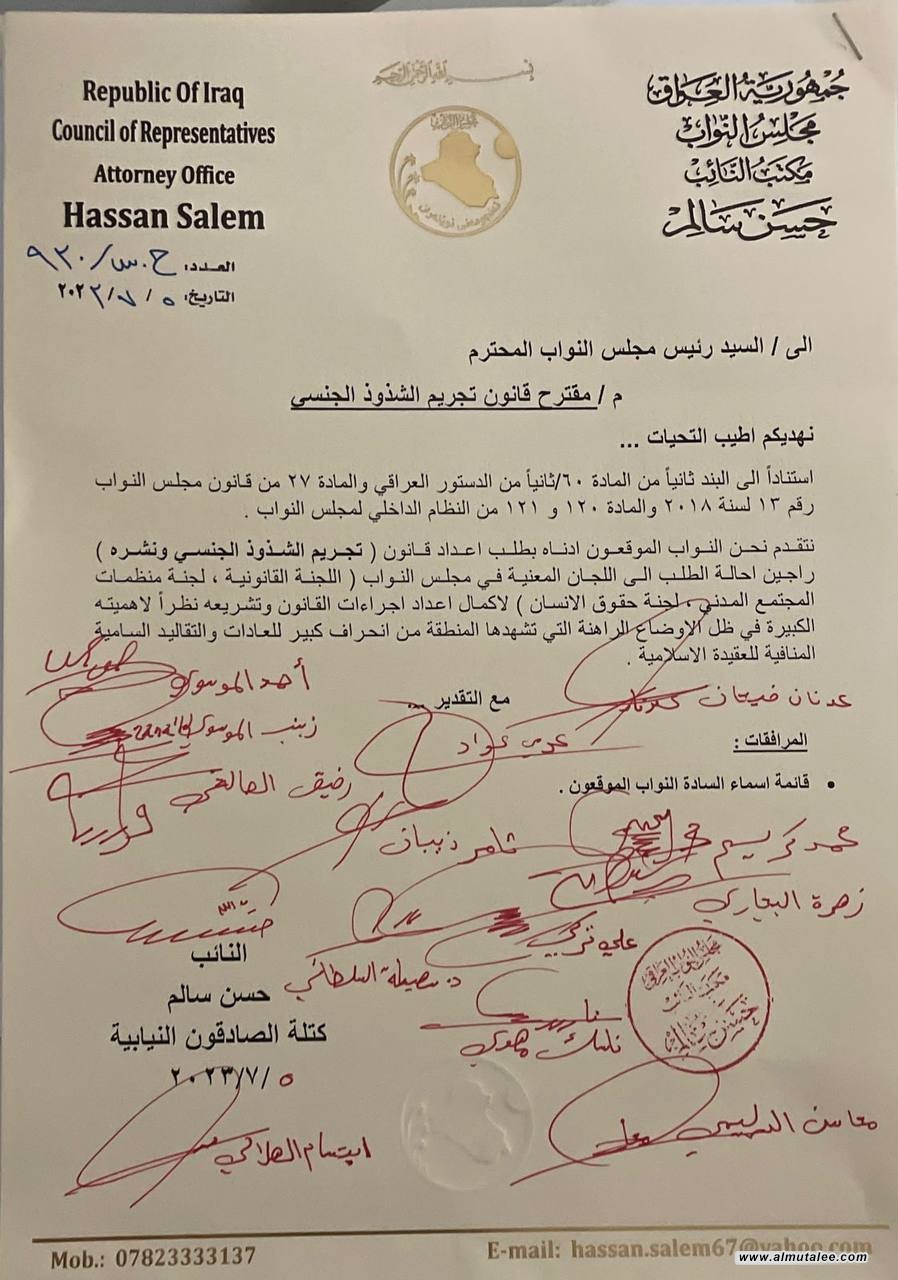 بسم الله الرحمن الرحيم
Republic Of Iraq
Council of Representatives
Attorney Office
Hassan Salem
جمهورية العراق
مجلس النواب
مكتب النائب
حسن سالم
مجلس النواب
العدد: ح.س/٩٣٠
التاريخ: ٥ / ٧ / ٢٠٢٣
الى / السيد رئيس مجلس النواب المحترم
م / مقترح قانون تجريم الشذوذ الجنسي
نهديكم اطيب التحيات ...
استناداً الى البند ثانياً من المادة ٦٠/ثانياً من الدستور العراقي والمادة ٢٧ من قانون مجلس النواب
رقم ١٣ لسنة ٢٠١٨ والمادة ١٢٠ و ١٢١ من النظام الداخلي لمجلس النواب .
نتقدم نحن النواب الموقعون ادناه بطلب اعداد قانون ( تجريم الشذوذ الجنسي ونشره )
راجين احالة الطلب الى اللجان المعنية في مجلس النواب ( اللجنة القانونية ، لجنة منظمات
المجتمع المدني ، لجنة حقوق الانسان ) لاكمال اعداد اجراءات القانون وتشريعه نظراً لاهميته
الكبيرة في ظل الاوضاع الراهنة التي تشهدها المنطقة من انحراف كبير للعادات والتقاليد السامية
المنافية للعقيدة الاسلامية .
أحمد الموسوي
عدنان فيحان
مع التقدير ...
زينب الموسوي
عدي عواد
المرافقات :
رفيق الصالحي
• قائمة اسماء السادة النواب الموقعون .
محمد كريم
ثامر ذيبان
زهرة البجاري
علي تركي
النائب
د. سهيلة السلطاني
حسن سالم
كتلة الصادقون النيابية
٢٠٢٣/٧/٥
مجلس النواب العراقي
مكتب النائب
حسن سالم
محاسن الدليمي
ابتسام الهلالي
Mob.: 07823333137
E-mail: hassan.salem67@yahoo.com
www.almutalee.com